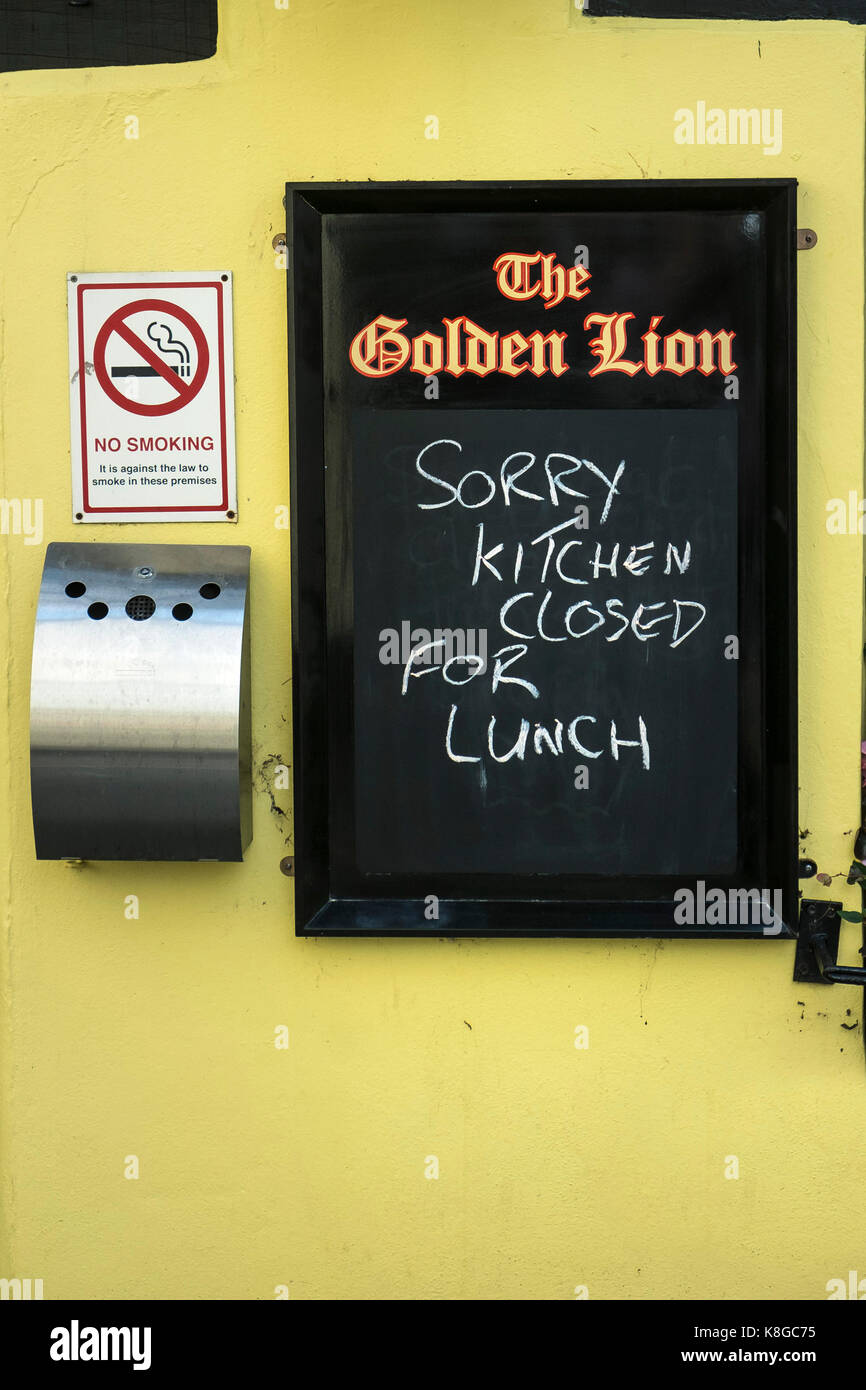 The
Golden Lion
SORRY
KITCHEN
CLOSED
FOR
LUNCH
NO SMOKING
It is against the law to
smoke in these premises
alamy
alamy
alamy
Image ID: K8GC75
www.alamy.com